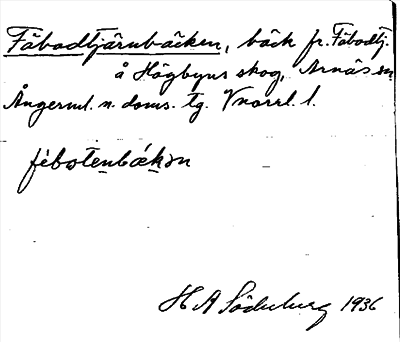 Fäbodtjärnbäcken, bäck fr. Fäbodtj.
å Högbyns skog, Arnäs sn
Ångerml. n. doms. tg. Vnorrl. l.
fèbotenbǽkən
H A Söderberg 1936